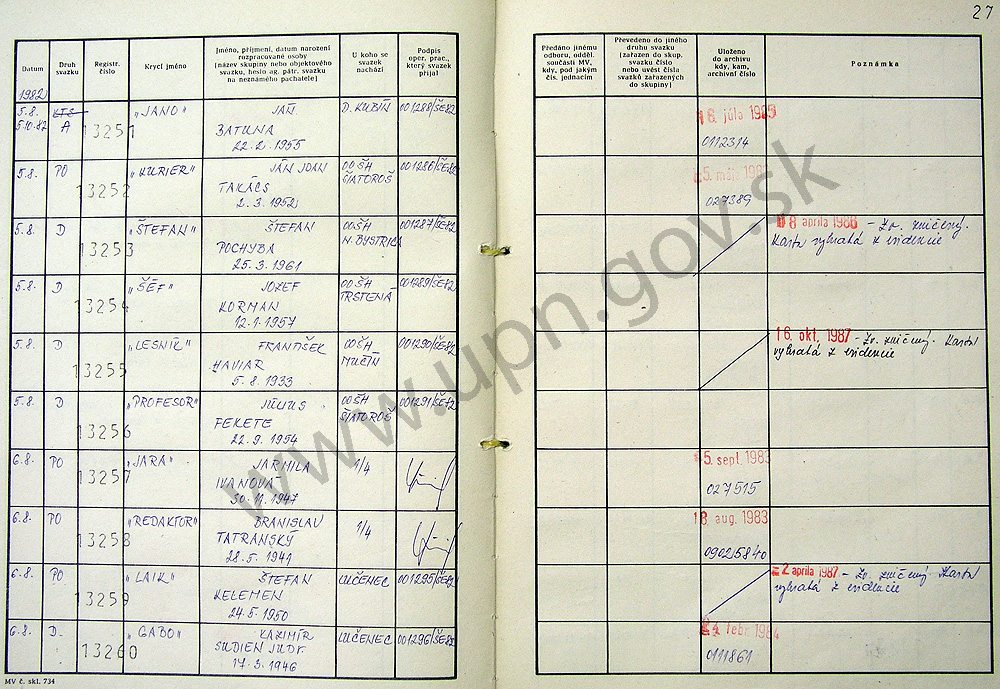 27
Datum
Druh
svazku
Registr.
číslo
Krycí jméno
Jméno, příjmení, datum narození
rozpracované osoby
(název skupiny nebo objektového
svazku, heslo ag. pátr. svazku
na neznámého pachatele)
U koho se
svazek
nachází
Podpis
oper. prac.,
který svazek
přijal
Předáno jinému
odboru, odděl.
součásti MV,
kdy, pod jakým
čís. jednacím
Převedeno do jiného
druhu svazku
(zařazen do skup.
svazku číslo
nebo uvést čísla
svazků zařazených
do skupiny)
Uloženo
do archivu
kdy, kam,
archivní číslo
Poznámka
1982
5.8. KTS „JANO" JÁN D. KUBÍN 001288/ŠE82
5.10.82 A 13251 BATUNA
22.2.1955
18. júla 1985
0112314
5.8. PO „KURIER" JÁN IOAN OOŠH 001286/ŠE82
13252 TAKÁCS ŠIATOROŠ
2.3.1952
5. mája 198
027389
5.8. D „ŠTEFAN" ŠTEFAN OOŠH 001287/ŠE82
13253 POCHYBA N. BYSTRICA
25.3.1961
8 apríla 1986 - Zv. zničený.
Karta vybratá z evidencie
5.8. D „ŠÉF" JOZEF OOŠH 001289/ŠE82
13254 KORMAN TRSTENÁ
12.1.1957
5.8. D „LESNÍK" FRANTIŠEK OOŠH 001290/ŠE82
13255 HAVIAR MUČÍN
5.8.1933
16. okt. 1987 - Zv. zničený. Karta
vybratá z evidencie
5.8. D „PROFESOR" JÚLIUS OOŠH 001291/ŠE82
13256 FEKETE ŠIATOROŠ
22.9.1954
6.8. PO „JARA" JARMILA 1/4
13257 IVANOVÁ
30.11.1947
5. sept. 1983
027515
6.8. PO „REDAKTOR" BRANISLAV 1/4
13258 TATRANSKÝ
28.5.1941
18 aug. 1983
09025840
6.8. PO „LAIK" ŠTEFAN LUČENEC 001295/ŠE82
13259 KELEMEN
24.5.1950
2 apríla 1987 - Zv. zničený Karta
vybratá z evidencie
6.8. D. „GABO" KAZIMÍR LUČENEC 001296/ŠE82
13260 SUDIEN JUDr.
17.3.1946
24 febr. 1984
0111861
MV č. skl. 734
www.upn.gov.sk